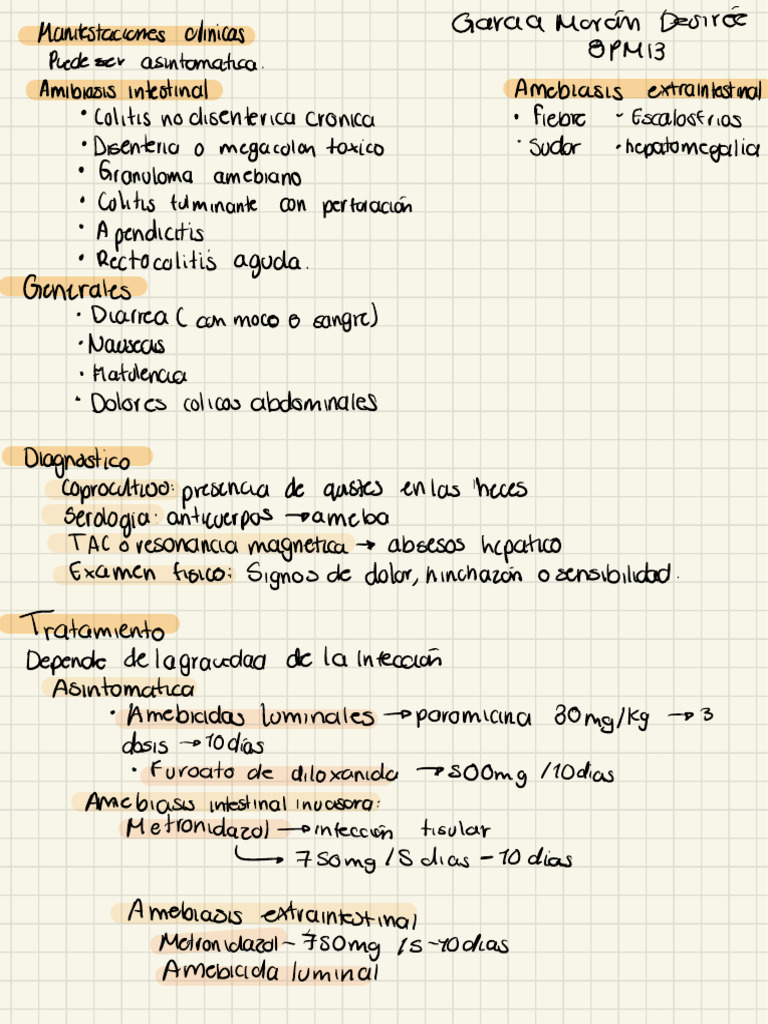 Garcia Morán Desirée
8PM13
Manifestaciones clinicas
Puede ser asintomatica.
Amibiasis intestinal
• Colitis no disenterica cronica
• Disenteria o megacolon toxico
• Granuloma amebiano
• Colitis fulminante con perforación
• Apendicitis
• Rectocolitis aguda.
Amebiasis extraintestinal
• Fiebre - Escalosfrios
• Sudor • hepatomegalia
Generales
• Diarrea ( con moco o sangre)
• Nauseas
• Flatulencia
• Dolores colicos abdominales
Diagnostico
Coprocultivo: presencia de quistes en las heces
Serologia: anticuerpos → ameba
TAC o resonancia magnetica → absesos hepatico
Examen fisico: Signos de dolor, hinchazón o sensibilidad.
Tratamiento
Depende de la gravedad de la infección
Asintomatica
• Amebicidas luminales → paromicina 30mg/kg → 3
dosis → 10 días
• Furoato de diloxanida → 500mg /10 dias
Amebiasis intestinal invasora:
Metronidazol → infección tisular
→ 750mg /5 dias - 10 dias
Amebiasis extraintestinal
Metronidazol - 750mg /5-10 dias
Amebicida luminal